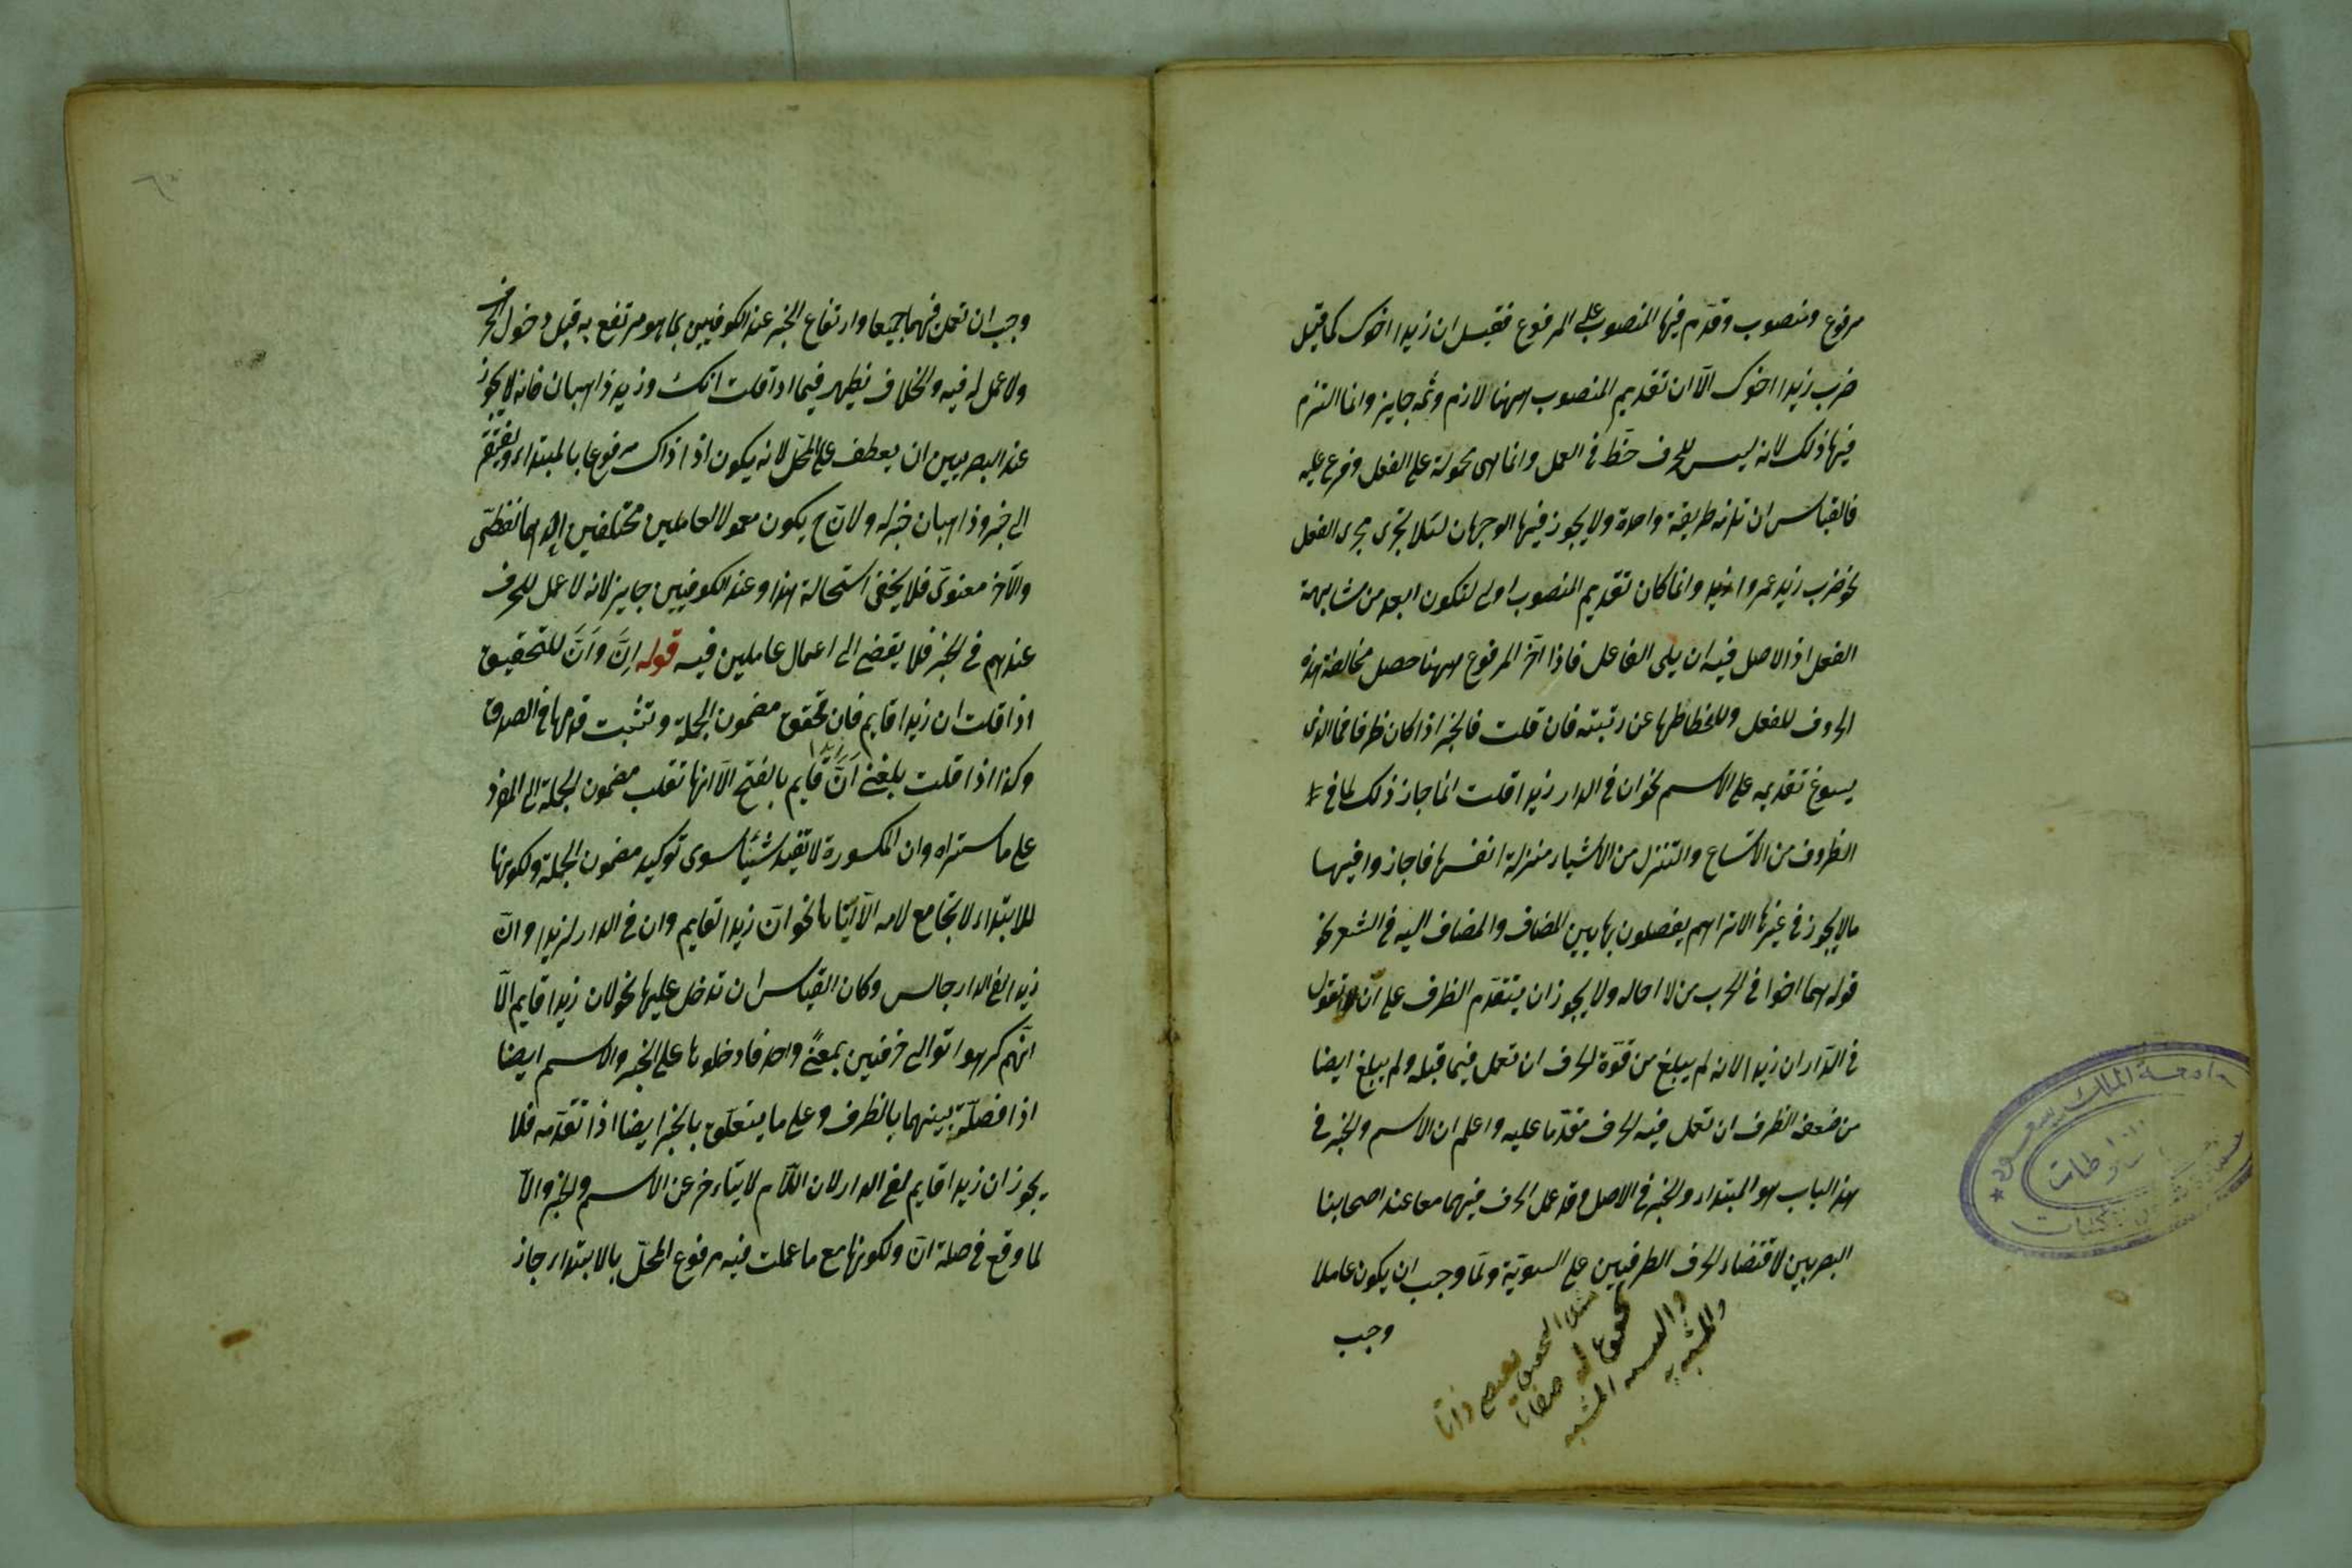 مرفوع ومنصوب وقدّم فيها المنصوب على المرفوع فقيل ان زيدا اخوك كما قيل
ضرب زيدا اخوك الّا ان تقديم المنصوب ههنا لازم وثمه جايز وانما التزم
فيها ذلك لانه ليس للحرف حظّ في العمل وانما هي محمولة على الفعل وفرع عليه
فالقياس ان تلزمه طريقة واحدة ولا يجوز فيها الوجهان لئلا تجرى مجرى الفعل
نحو ضرب زيد عمروا وانما كان تقديم المنصوب اولى لتكون ابعد من مشابهة
الفعل اذ الاصل فيه ان يلى الفاعل فاذا اخّر المرفوع ههنا حصل مخالفة هذه
الحروف للفعل وانحطاطها عن رتبته فان قلت فالخبر اذا كان ظرفا فما الذى
يسوغ تقديمه على الاسم نحو ان في الدار زيدا قلت انما جاز ذلك لما في
الظروف من الاتساع والتنزل من الاشياء منزلة انفسها فاجازوا فيها
ما لا يجوز في غيرها الا تراهم يفصلون بها بين المضاف والمضاف اليه في الشعر نحو
قوله هما اخوا في الحرب من لا اخا له ولا يجوز ان يتقدّم الظرف على انّ تقول
في الدّار ان زيدا لانه لم يبلغ من قوّة الحرف ان تعمل فيما قبله ولم يبلغ ايضا
من ضعف الظرف ان تعمل فيه الحرف مقدّما عليه واعلم ان الاسم والخبر في
هذا الباب هو المبتداء والخبر في الاصل وقد عمل الحرف فيهما معا عند اصحابنا
البصريين لاقتضاء الحرف الطرفين على السويّة ولمّا وجب ان يكون عاملا
وجب
والمشبه به
وجب ان تعمل فيهما جميعا وارتفاع الخبر عند الكوفيين بما هو مرتفع به قبل دخول الحرف
ولا عمل له فيه والخلاف يظهر فيما اذا قلت انك وزيد ذاهبان فانه لا يجوز
عند البصريين ان يعطف على المحلّ لانه يكون اذ ذاك مرفوعا بالمبتداء ويفتقر
الى خبر وذاهبان خبر له ولانّ ح يكون معمولا لعاملين مختلفين احدهما لفظىّ
والآخر معنوىّ فلا يخفى استحالة هذا وعند الكوفيين جايز لانه لا عمل للحرف
عندهم في الخبر فلا يفضى الى اعمال عاملين فيه قوله اِنَّ وَاَنَّ للتحقيق
اذا قلت ان زيدا قايم فان تحقق مضمون الجملة وتثبت قدمها في الصدق
وكذا اذا قلت بلغنى اَنَّ زيدا قايم بالفتح الّا انها تقلب مضمون الجملة الى المفرد
على ما ستراه وان المكسورة لا تفيد شيئا سوى توكيد مضمون الجملة ولكونها
للابتداء لا تجامع لامه الّا ايّاها نحو انّ زيدا لقايم وان في الدار لزيدا وانّ
زيدا لفى الدار جالس وكان القياس ان تدخل عليها نحو لان زيدا قايم الّا
انّهم كرهوا توالى حرفين بمعنًى واحد فادخلوها على الخبر والاسم ايضا
اذا فصلت بينهما بالظرف وعلى ما يتعلّق بالخبر ايضا اذا تقدّمه فلا
يجوز ان زيدا قايم لفى الدار لان اللّام لا يتاخر عن الاسم والخبر والّا
لما وقع في صلة انّ ولكونها مع ما عملت فيه مرفوع المحلّ بالابتداء جاز
جامعة الملك سعود